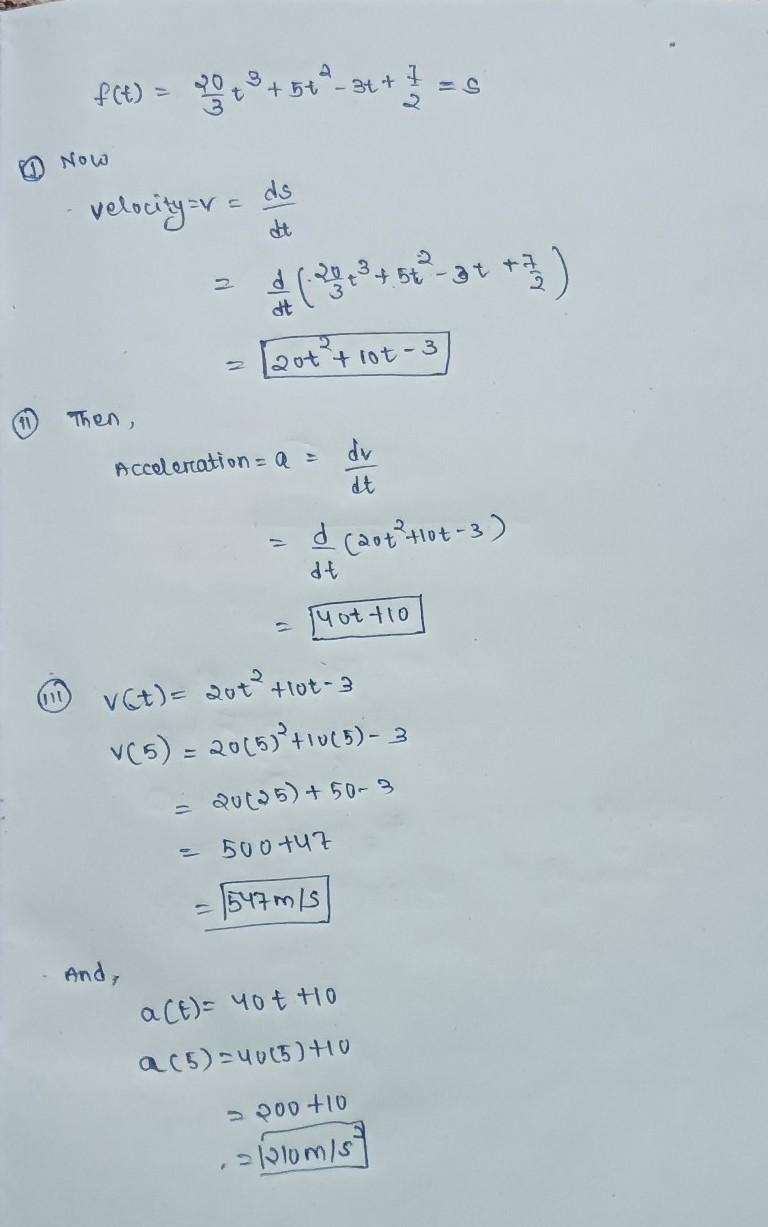 f(t) = 20/3 t³ + 5t² - 3t + 7/2 = s
(i) Now
velocity = v = ds/dt
= d/dt (20/3 t³ + 5t² - 3t + 7/2)
= 20t² + 10t - 3
(ii) Then,
Acceleration = a = dv/dt
= d/dt (20t² + 10t - 3)
= 40t + 10
(iii) v(t) = 20t² + 10t - 3
v(5) = 20(5)² + 10(5) - 3
= 20(25) + 50 - 3
= 500 + 47
= 547 m/s
And,
a(t) = 40t + 10
a(5) = 40(5) + 10
= 200 + 10
= 210 m/s²